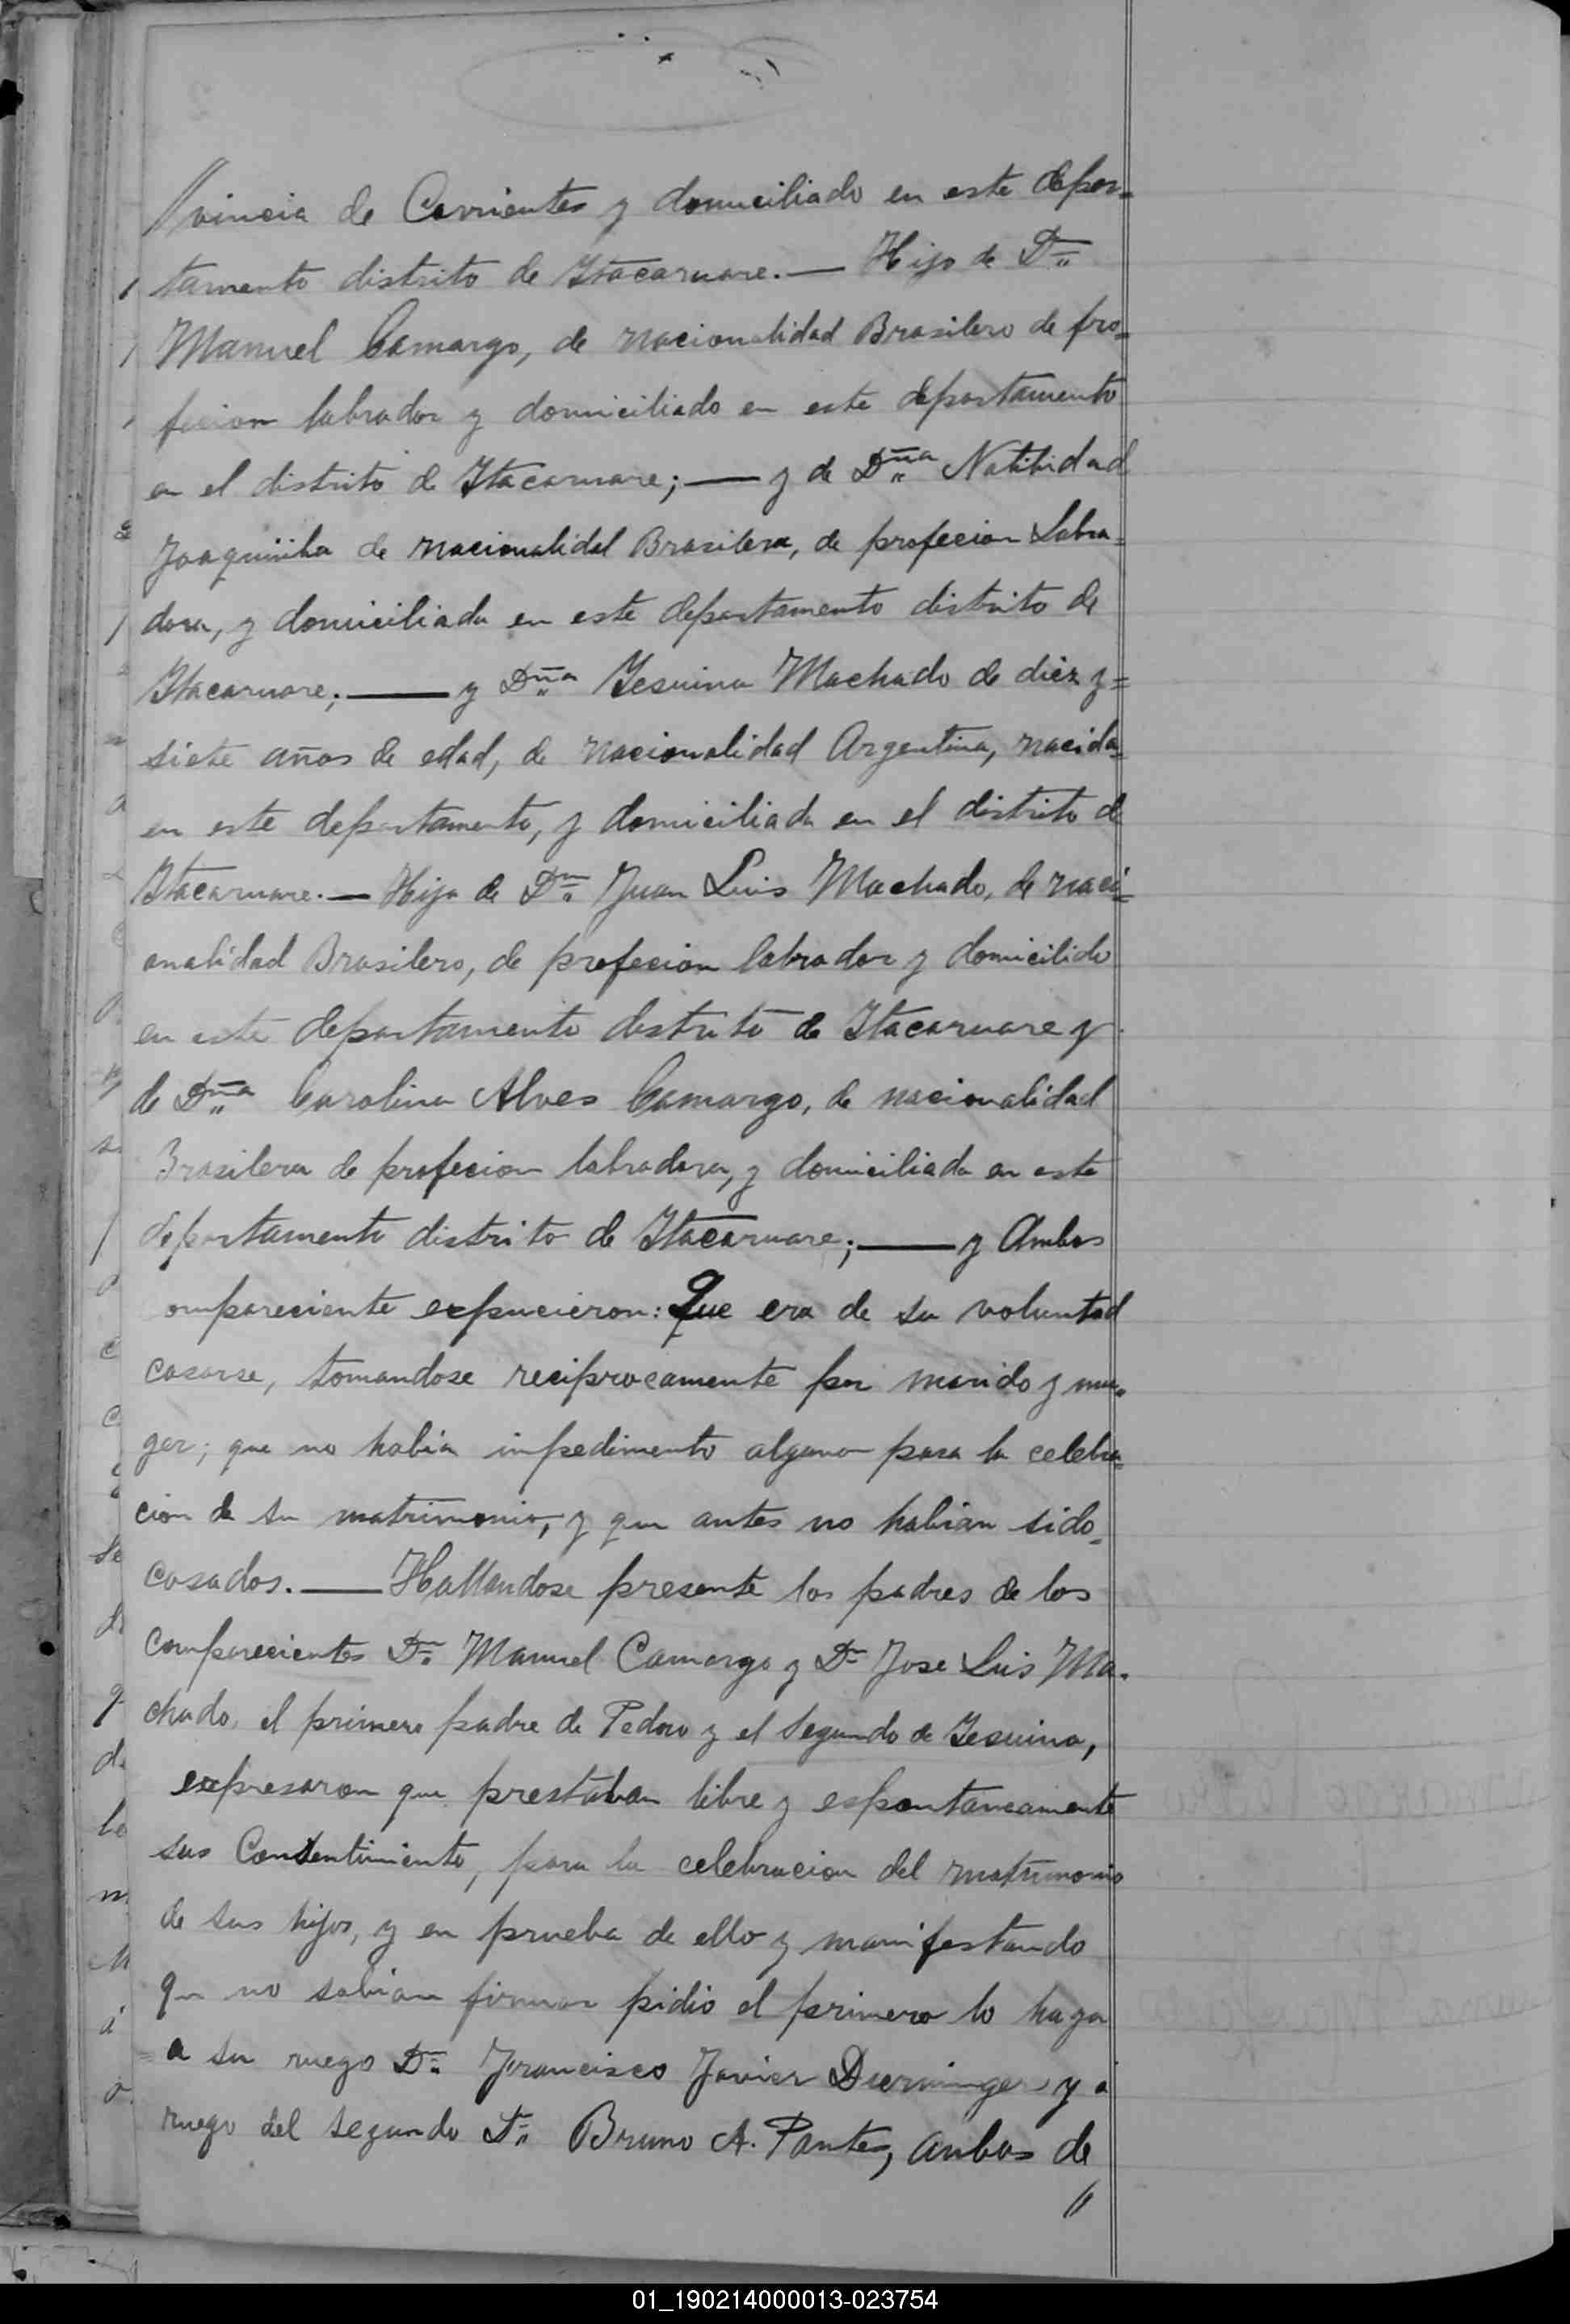 //vincia de Corrientes y domiciliado en este depar=
tamento distrito de Itacaruare.— Hijo de Dn
Manuel Camargo, de nacionalidad Brasilero de pro=
fecion labrador y domiciliado en este departamento
en el distrito de Itacaruare;— y de Dña Natibidad
de nacionalidad Brasilera, de profecion Labra=
dora, y domiciliada en este departamento distrito de
Itacaruare;— y Dña Jesuina Machado de diez y=
siete años de edad, de nacionalidad Argentina, nacida=
en este departamento, y domiciliada en el distrito de
Itacaruare.— Hija de Dn Juan Luis Machado, de naci=
onalidad Brasilero, de profecion labrador y domicilido
en este departamento distrito de Itacaruare y
de Dña Carolina Alves Camargo, de nacionalidad
Brasilera de profecion labradora, y domiciliada en este
departamento distrito de Itacaruare;— y Ambos
ompareciente expucieron: Que era de su voluntad
casarse, tomandose reciprocamente por marido y mu=
ger; que no habia impedimento alguno para la celebra=
cion de su matrimonio, y que antes no habian sido=
casados.— Hallandose presente los padres de los
comparecientes Dn Manuel Camargo y Dn Jose Luis Ma=
chado, el primero padre de Pedro y el segundo de Jesuina,
expresaron que prestaban libre y espontaneamente
sus Consentimiento, para la celebracion del matrimonio
de sus hijos, y en prueba de ello y manifestando
que no sabian firmar pidio el primero lo haga
a su ruego Dn Francisco Javier y a
ruego del segundo Dn Bruno A. Pantes, anbos de
//
01_190214000013-023754